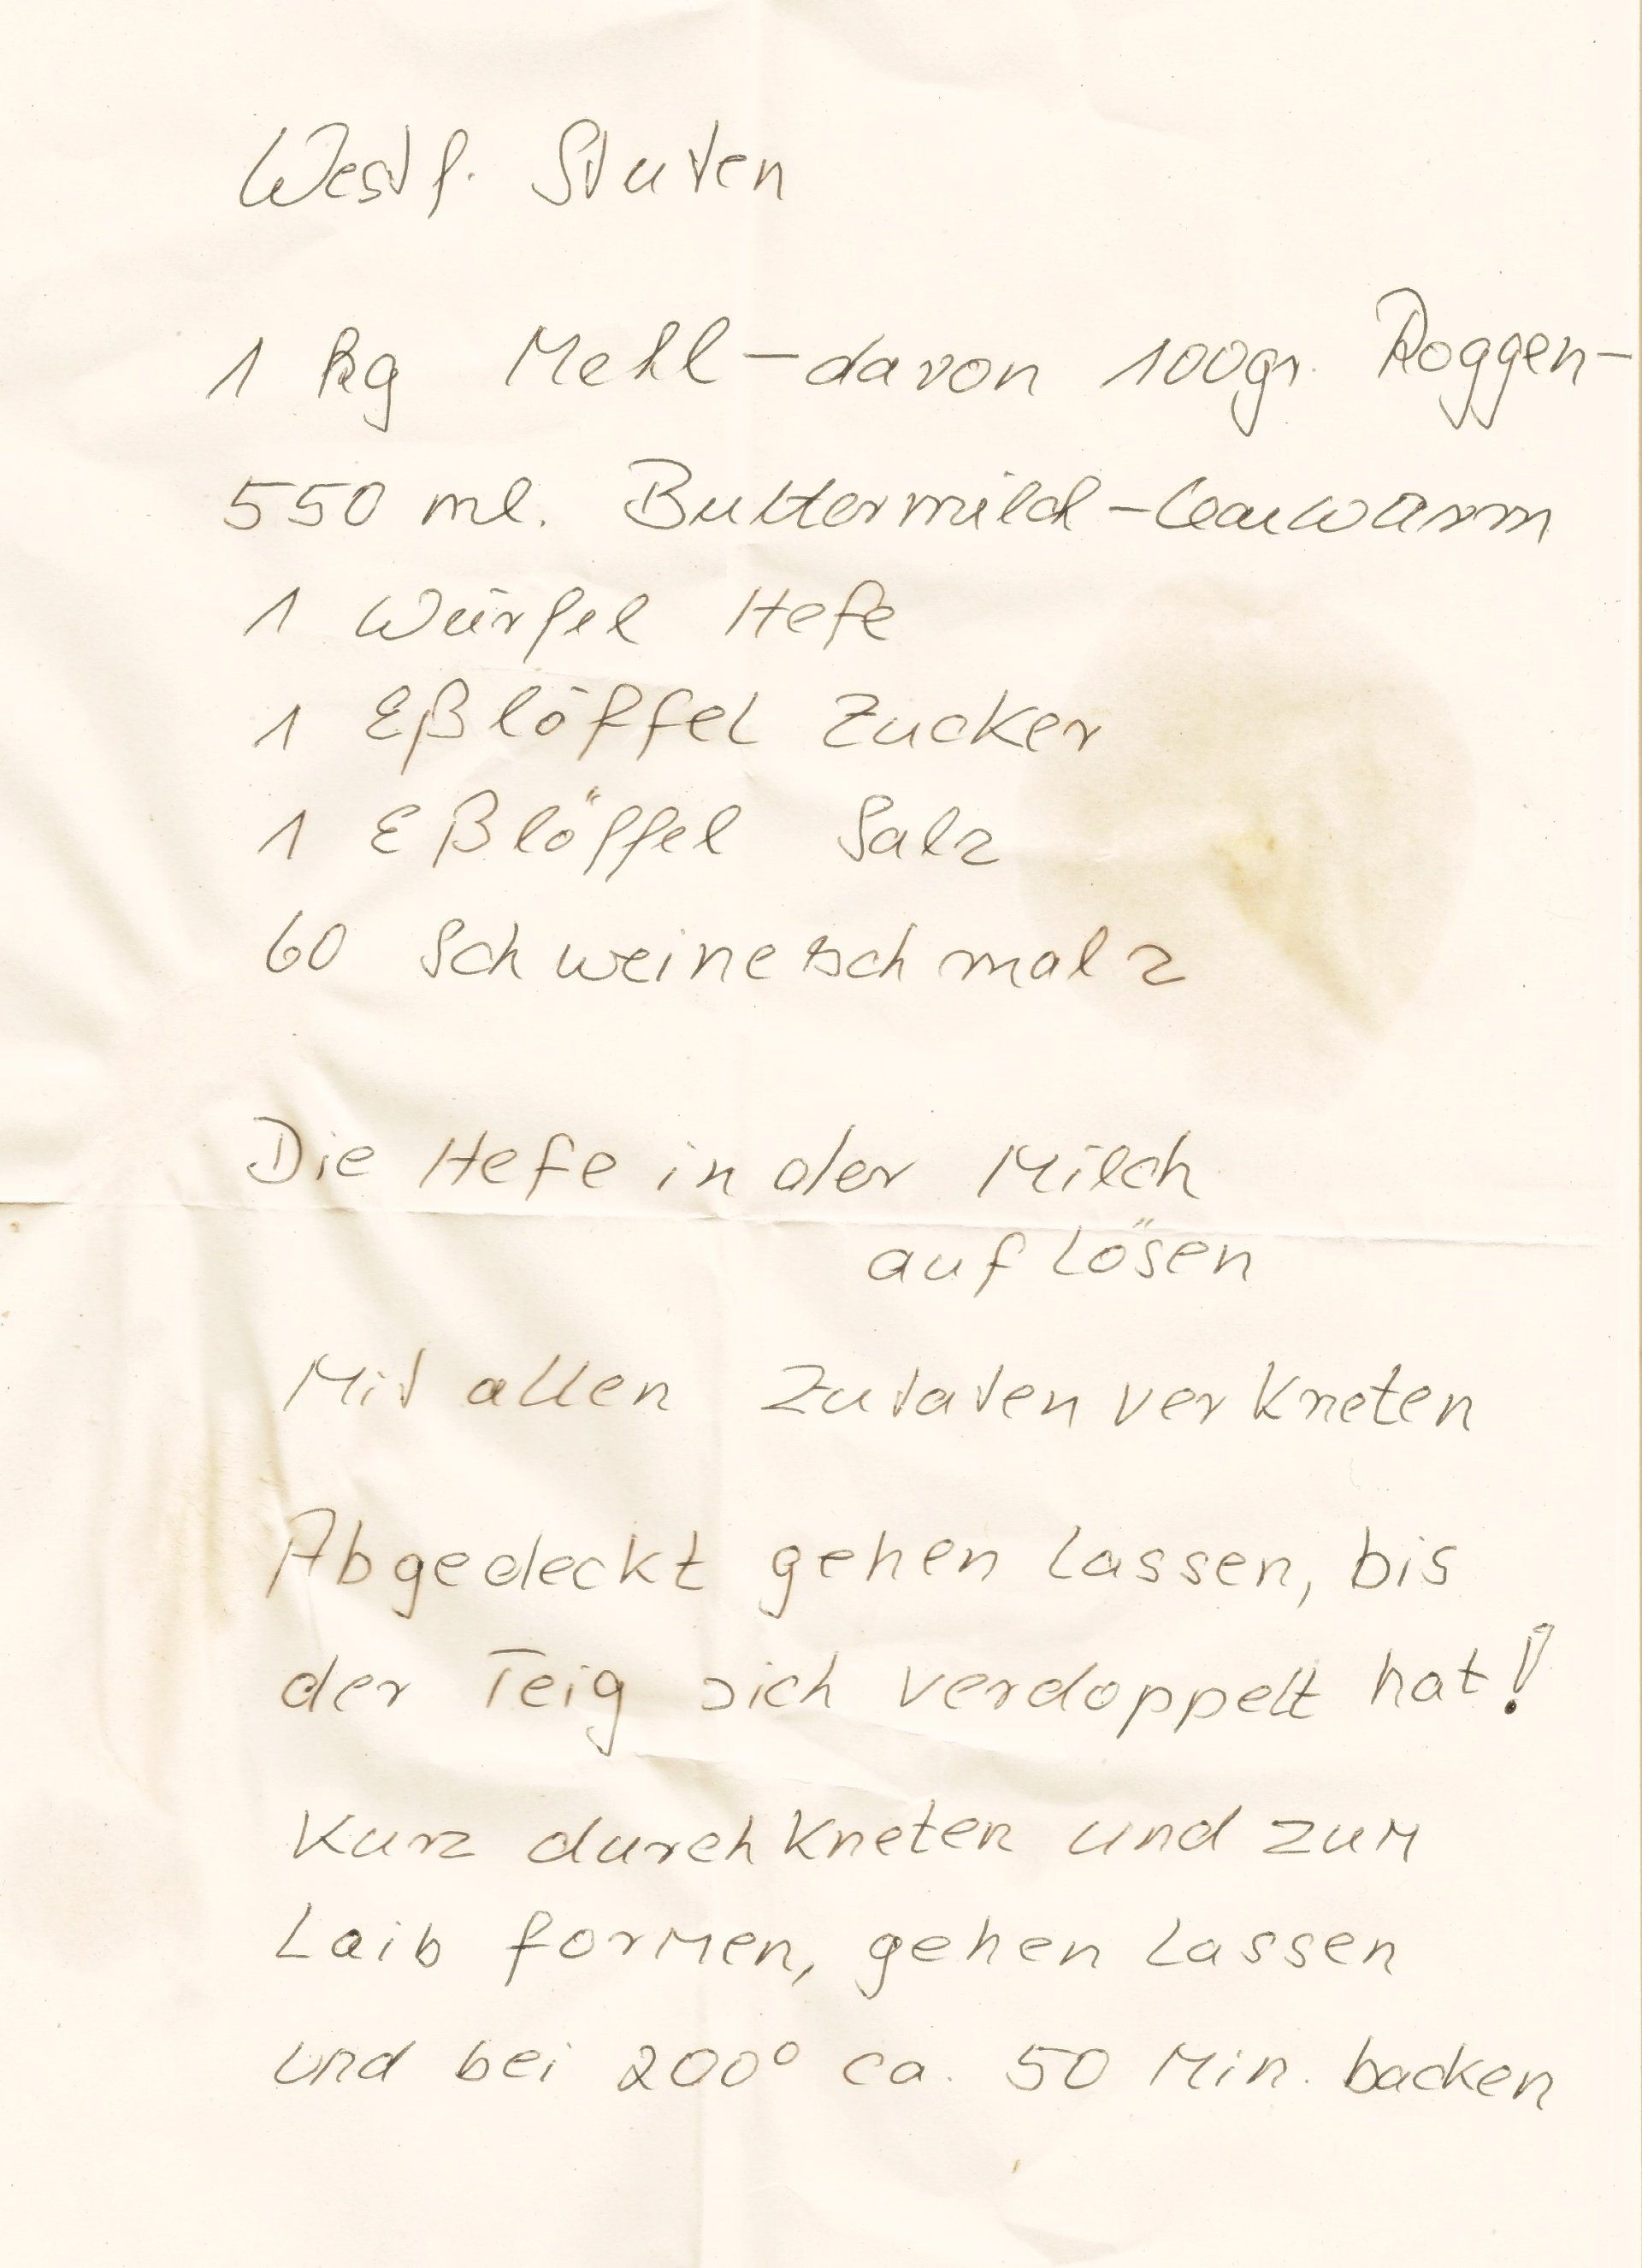 Westf. Stuten
1 kg Mehl – davon 100gr. Roggen-
550 ml. Buttermilch – lauwarm
1 Würfel Hefe
1 Eßlöffel Zucker
1 Eßlöffel Salz
60 Schweineschmalz
Die Hefe in der Milch
auflösen
Mit allen Zutaten verkneten
Abgedeckt gehen lassen, bis
der Teig sich verdoppelt hat!
Kurz durchkneten und zum
Laib formen, gehen lassen
und bei 200° ca. 50 Min. backen